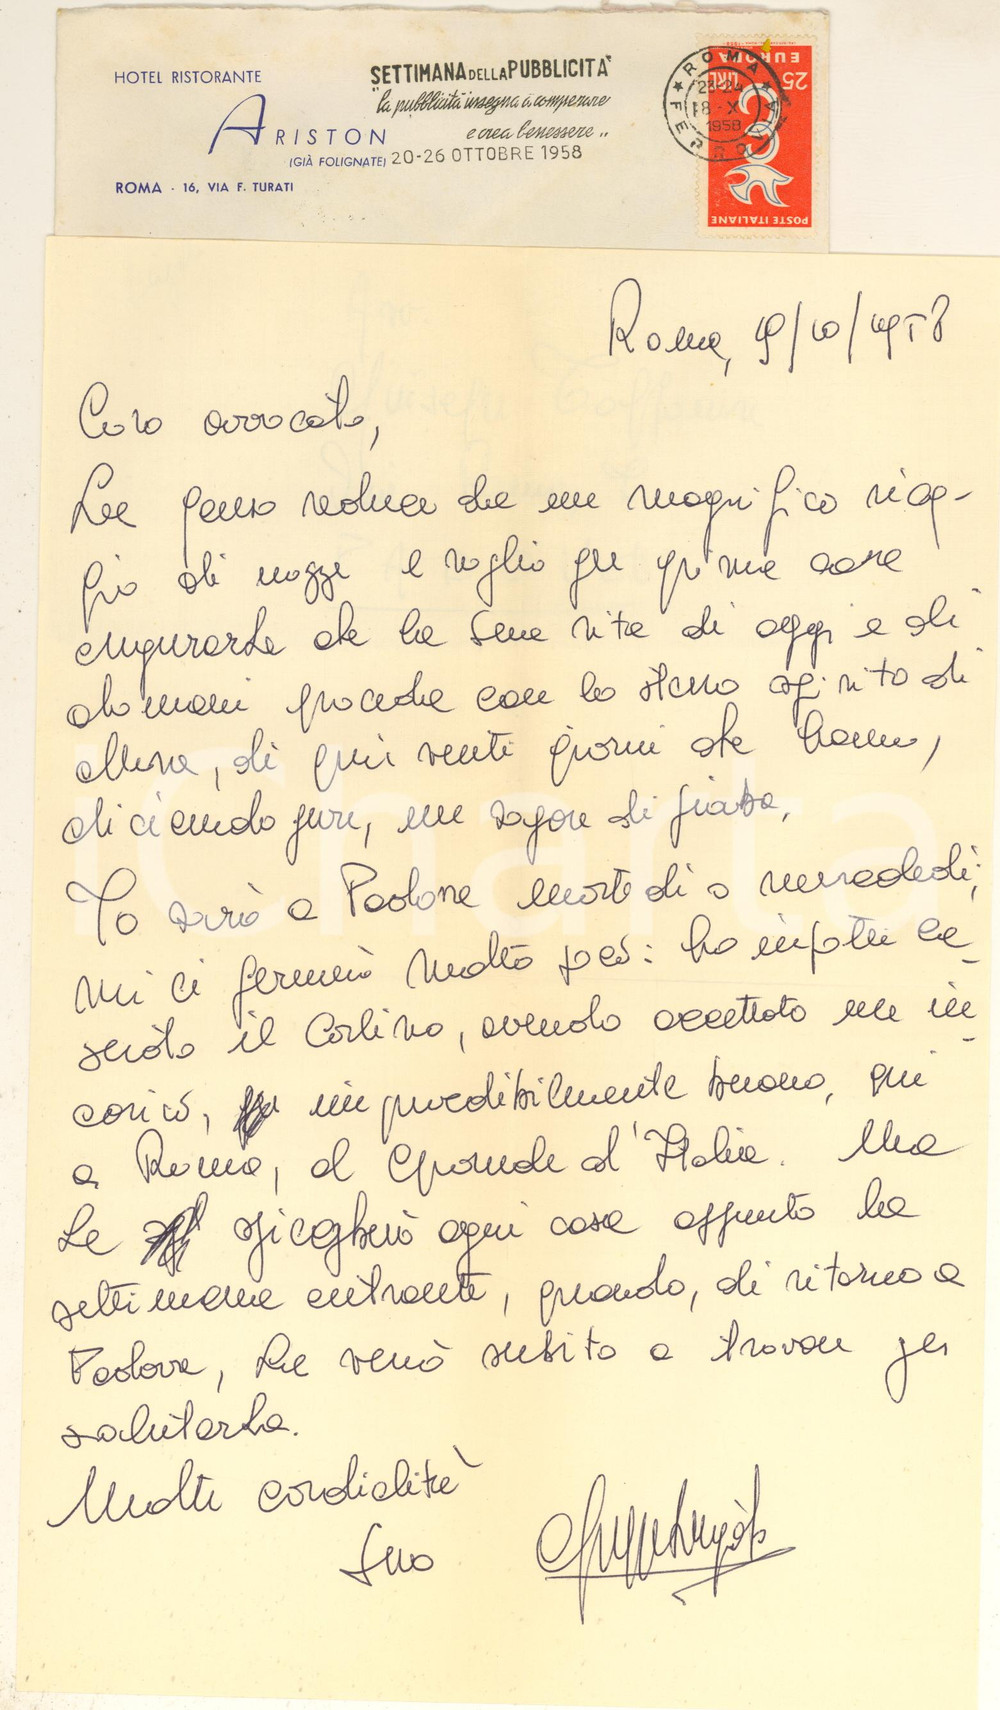 HOTEL RISTORANTE
ARISTON
(GIÀ FOLIGNATE)
ROMA - 16, VIA F. TURATI
SETTIMANA DELLA PUBBLICITÀ
"la pubblicità insegna a comperare
e crea benessere"
20-26 OTTOBRE 1958
ROMA FERROVIA
23-24
18-X
1958
25 LIRE
EUROPA
POSTE ITALIANE
Roma, 19/10/1958
Caro avvocato,
La penso reduce da un magnifico viag-
gio di nozze e voglio per prima cosa
augurarLe che la Sua vita di oggi e di
domani proceda con lo stesso spirito di
allora, di quei venti giorni che hanno,
diciamolo pure, un sapore di fiaba.
Io sarò a Padova martedì o mercoledì;
mi ci fermerò molto poco: ho infatti la-
sciato il Cortivo, avendo accettato un in-
carico, imprevedibilmente buono, qui
a Roma, al Giornale d'Italia. Ma
Le spiegherò ogni cosa appunto la
settimana entrante, quando, di ritorno a
Padova, La verrò subito a trovare per
salutarLa.
Molte cordialità
Suo
iCharta